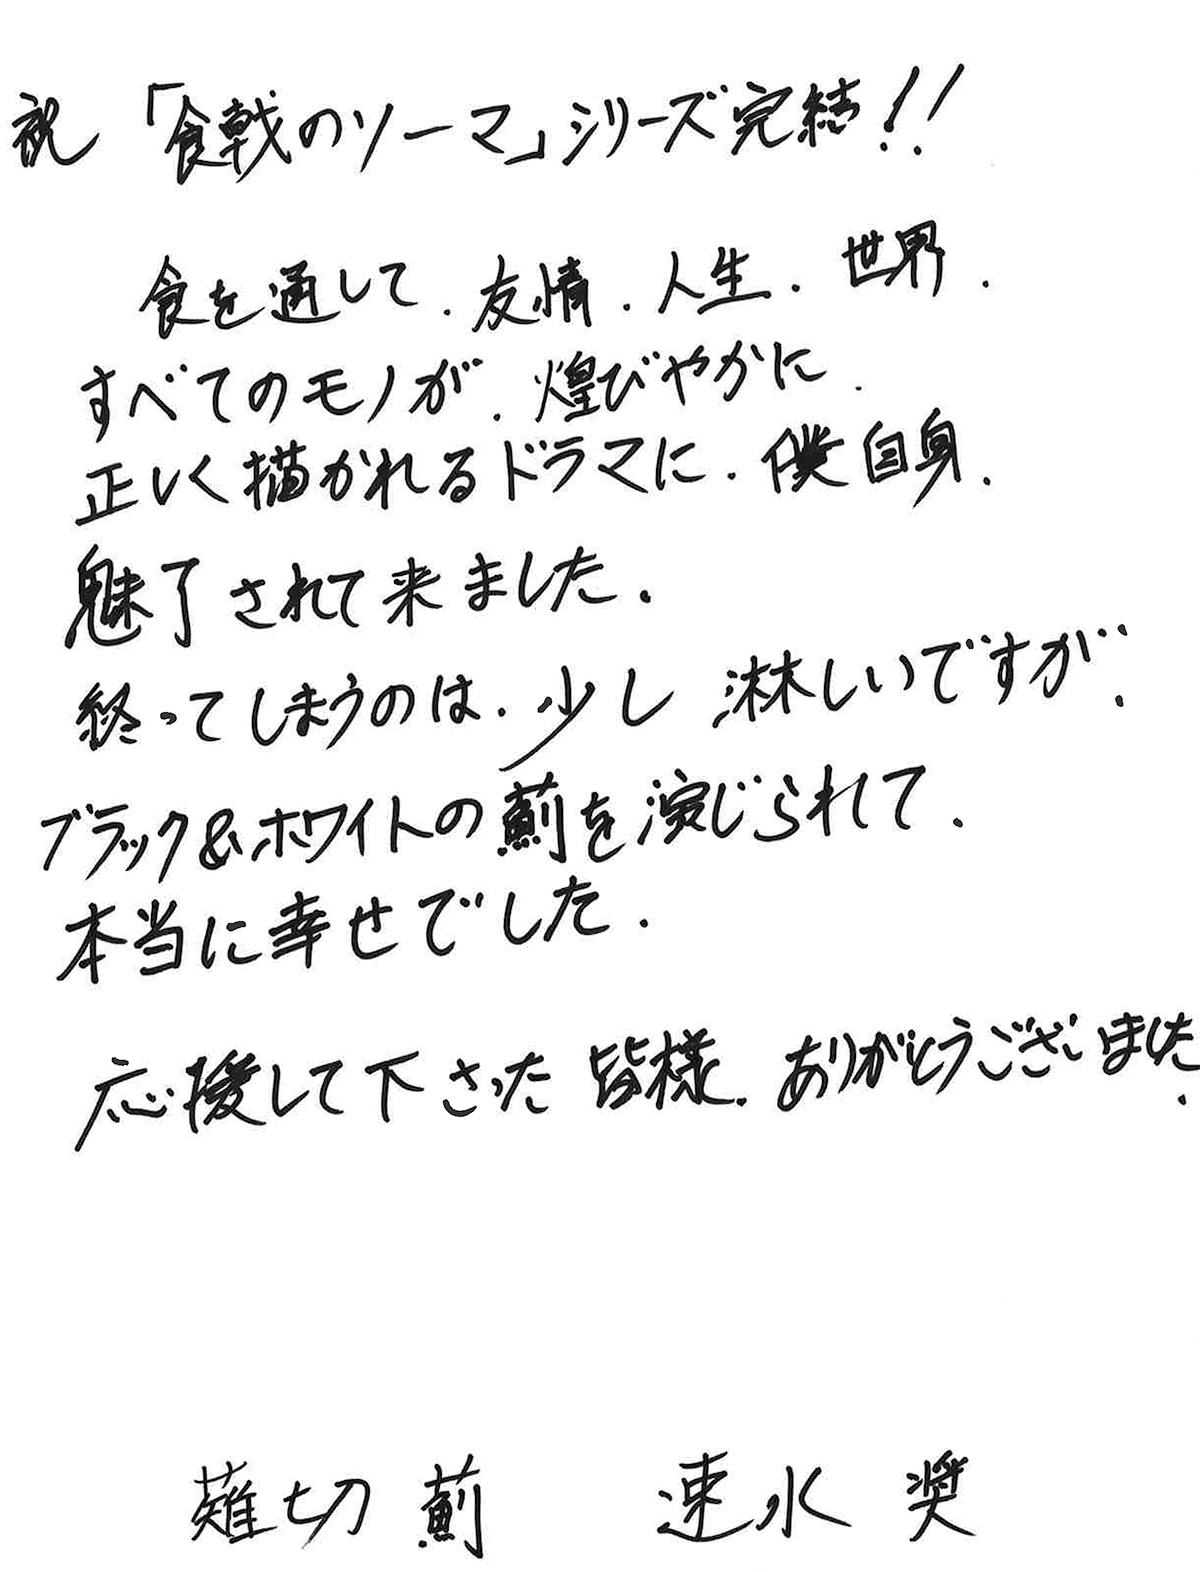 祝「食戟のソーマ」シリーズ完結!!
食を通して.友情.人生.世界.
すべてのモノが.煌びやかに.
正しく描かれるドラマに.僕自身.
魅了されて来ました.
終ってしまうのは.少し淋しいですが.
ブラック&ホワイトの薊を演じられて.
本当に幸せでした.
応援して下さった皆様.ありがとうございました.
薙切 薊 速水 奨